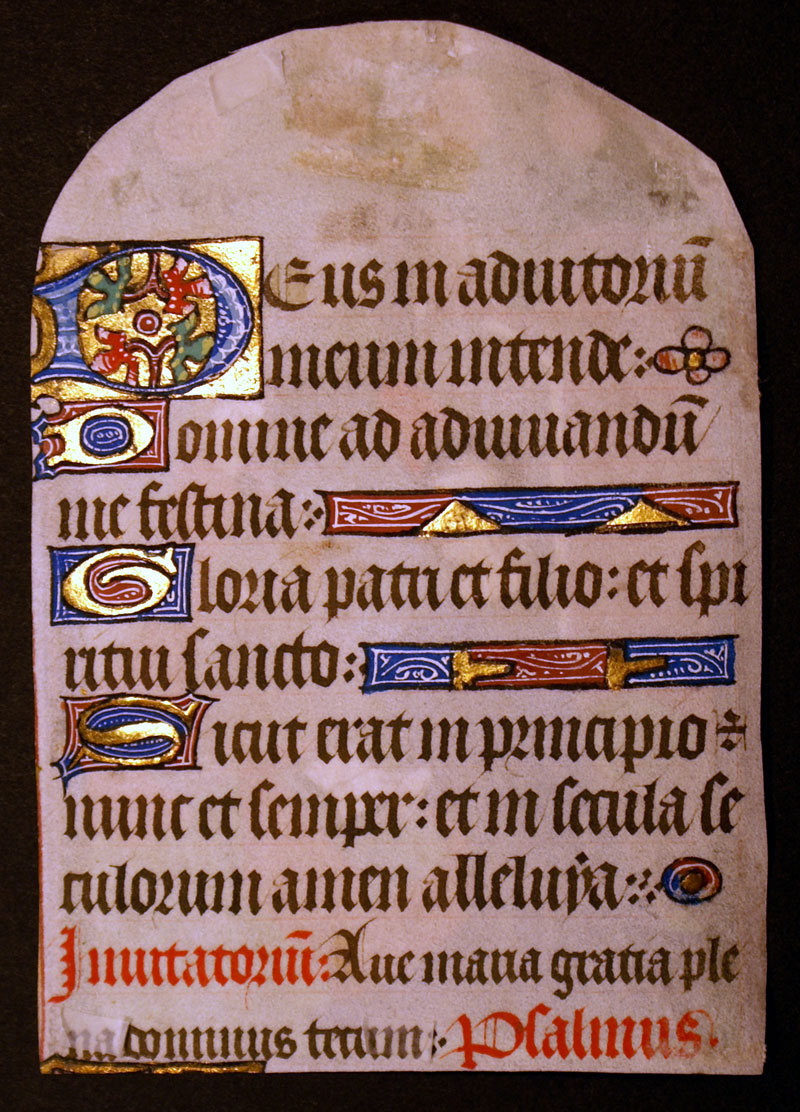 Deus in adiutoriū
meum intende:
Domine ad adiuuandū
me festina:
Gloria patri et filio: et spi
ritui sancto:
Sicut erat in principio ⁊
nunc et semper: et in secula se
culorum amen alleluya:
Inuitatoriū: Aue maria gratia ple
na dominus tecum: Psalmus.